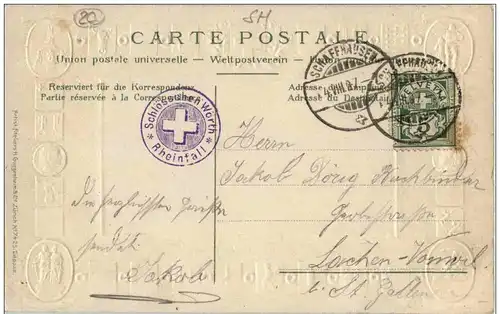 20
SH
CARTE POSTALE.
Union postale universelle — Weltpostverein —
Reserviert für die Korrespondenz
Partie réservée à la Correspondance
Adresse des Empfängers
Adresse du Destinataire
SCHAFFHAUSEN
SCHAFFHAUSEN
VIII.07
HELVETIA
5
Schlösschen Wörth
Rheinfall
Herrn
Jakob Dörig
die herzlichsten Grüsse
sendet
Jakob
Lachen-Vonwil
b. St. Gallen